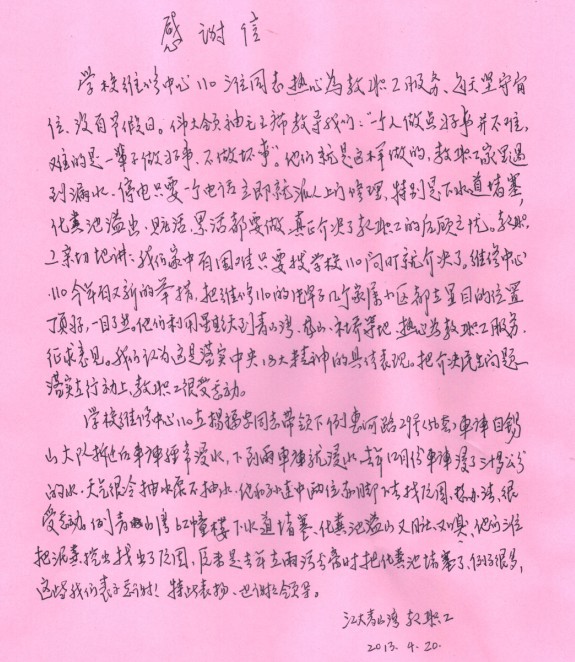 感谢信
学校维修中心110 准同志热心为教职工服务、每天坚守岗
位、没有节假日。伟大领袖毛主席教导我们:"一个人做点好事并不难,
难的是一辈子做好事、不做坏事"。他们就是这样做的,教职工家里遇
到漏水、停电只要一个电话立即就派人上门修理,特别是下水道堵塞,
化粪池溢出、脏活、累活都要做,真正介决了教职工的后顾之忧。教职
工亲切地讲:我们家中有困难只要找学校110问时就介决了。维修中心
110今年有又新的举措,把维修110的牌子几个家属小区都在显目的位置
顶好,一目了然。他们利用星期天到青山湾、惠山、社桥等地热心为教职工服务、
征求意见。我们认为这是落实中央18大精神的具体表现。把介决民生问题
落实在行动上,教职工很受感动。
学校维修中心110在杨福安同志带领下倒惠河路29号(北苑)车库自锡
山大队拆迁后车库经常浸水,下到雨车库就浸水、去年12月份车库浸了三十公分
的水、天气很冷抽水泵不抽水、他和孙连中两位赤脚下去找原因、想办法、很
受感动。例青山湾 幢楼下水道堵塞、化粪池溢出又脏又臭、他们三位
把泥粪挖出找出了原因,原来是去年在雨污分离时把化粪池堵塞了、例子很多,
这些我们表示感谢!特此表扬、也谢谢领导。
江大青山湾教职工
2013. 4. 20.